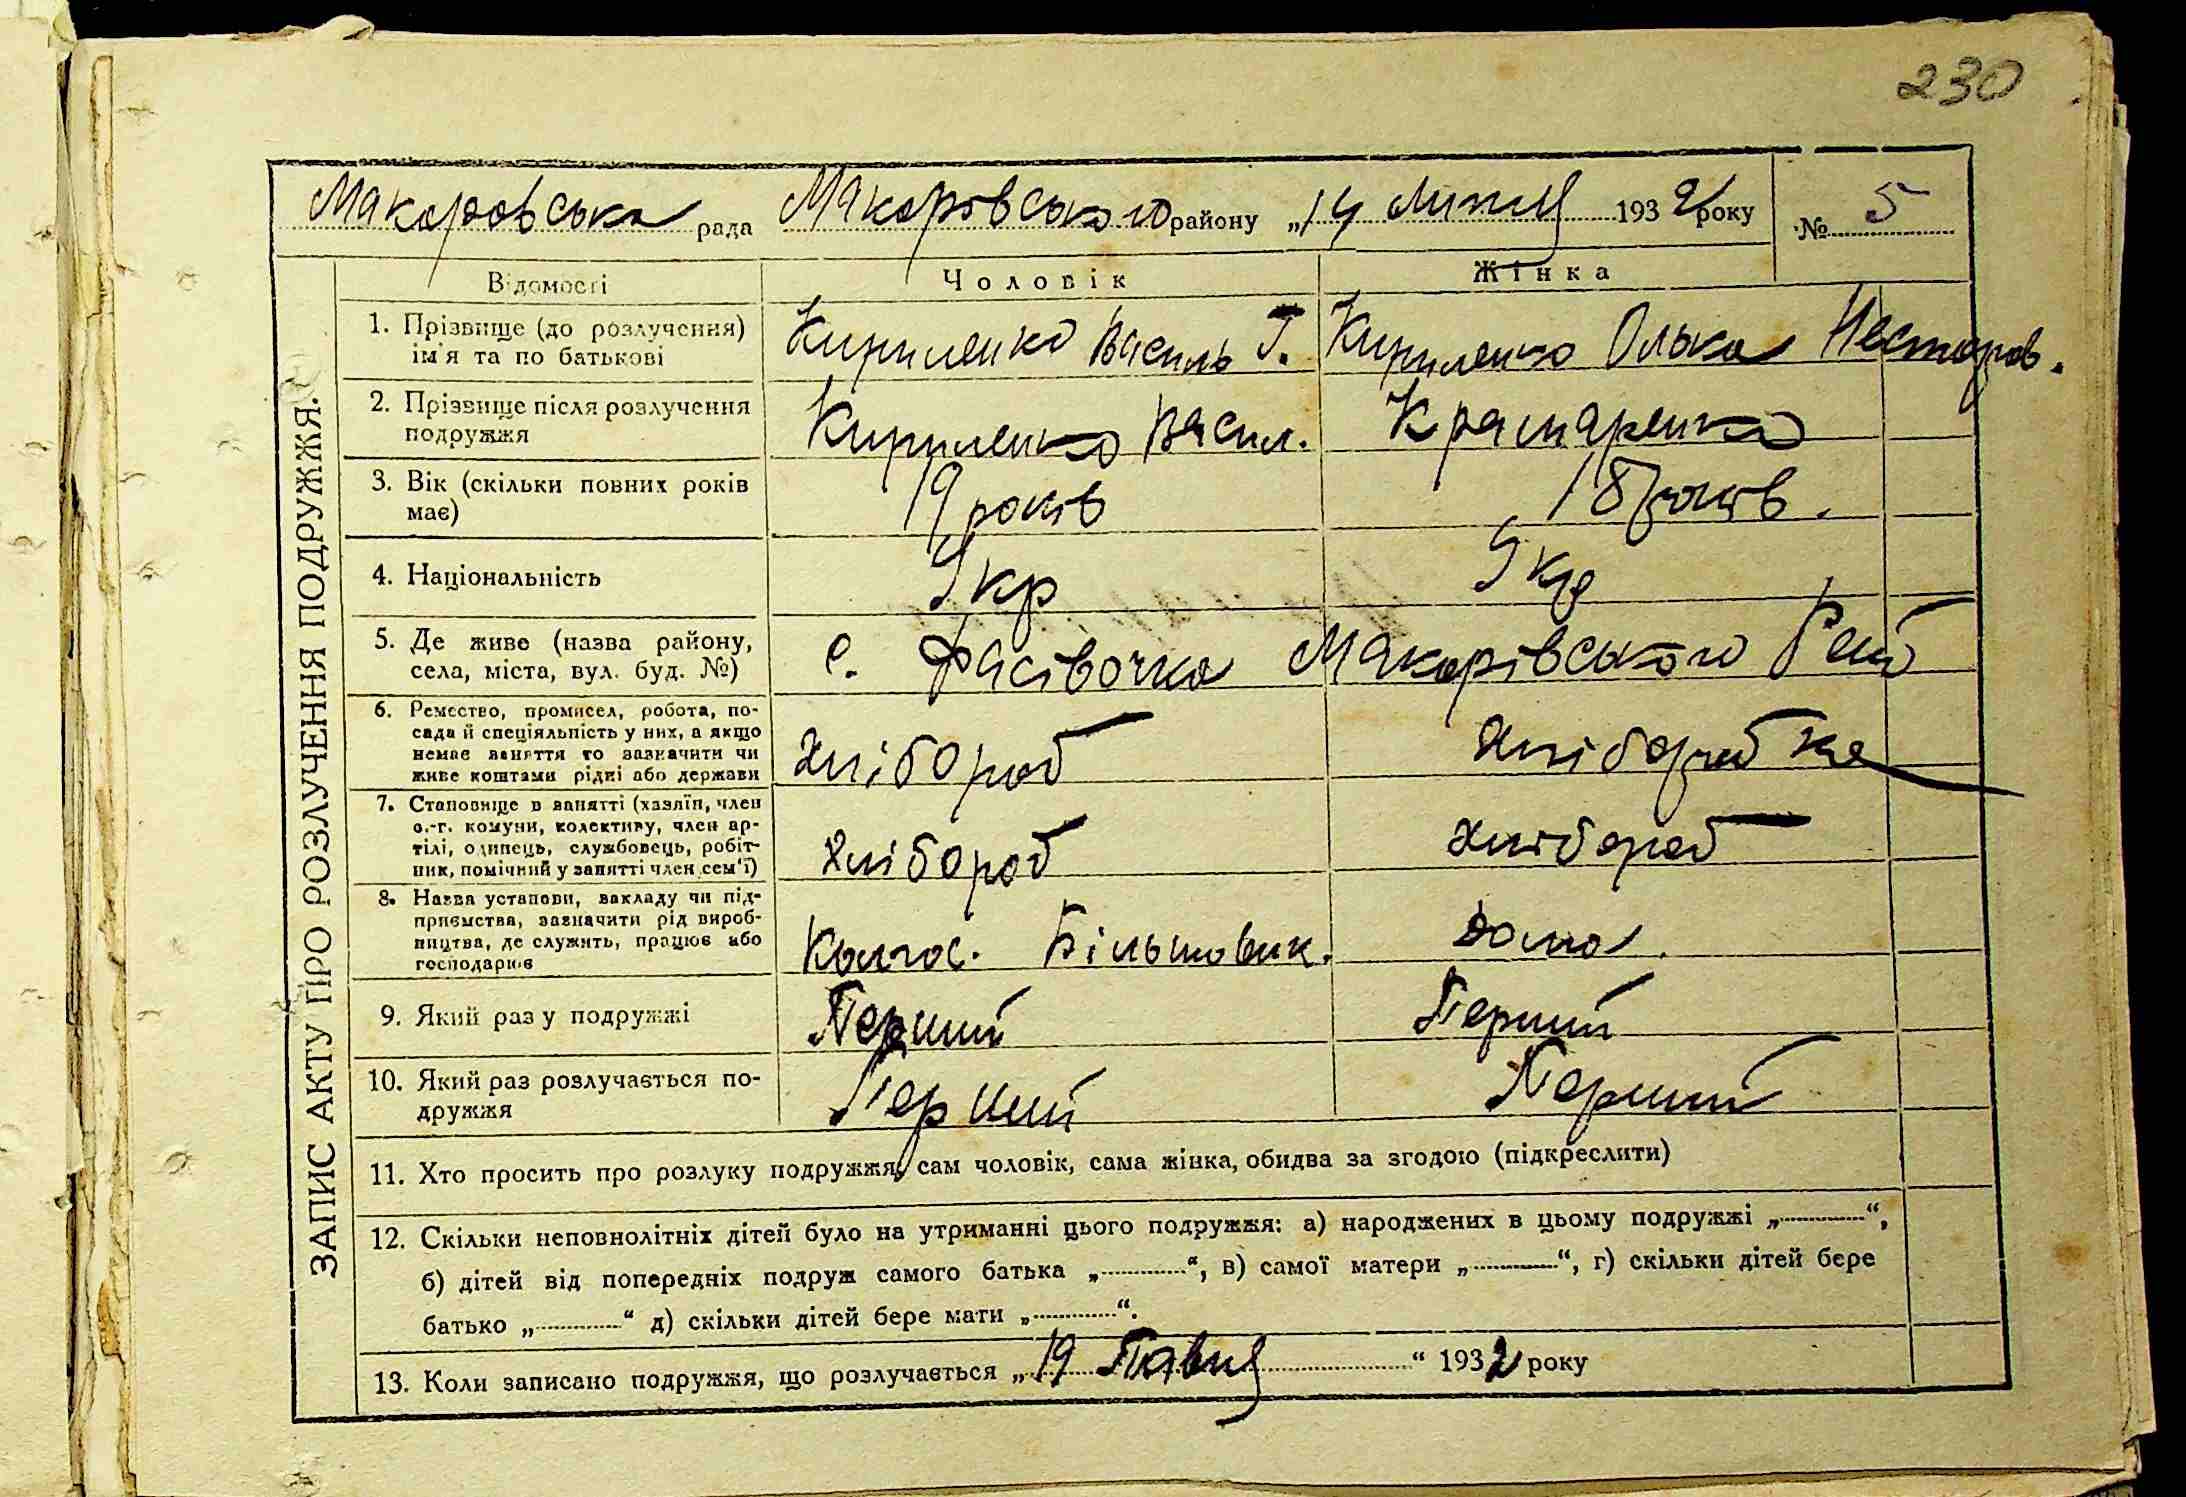 230
Макоровська рада Макорівського району „14 Липня 1932 року № 5
ЗАПИС АКТУ ПРО РОЗЛУЧЕННЯ ПОДРУЖЖЯ.
Відомості Чоловік Жінка
1. Прізвище (до розлучення) ім'я та по батькові Кириленко Василь Г. Кириленко Олька Несторов.
2. Прізвище після розлучення подружжя Кириленко Васил. Крамаренко
3. Вік (скільки повних років має) 19 років 18 років.
4. Національність Укр Укр
5. Де живе (назва району, села, міста, вул. буд. №) с. Фасівочка Макорівського Рей
6. Ремество, промисел, робота, по-
сада й спеціяльність у них, а якщо
немає заняття то зазначити чи
живе коштами рідні або держави Хлібороб Хліборобка
7. Становище в занятті (хазяїн, член
с.-г. комуни, колективу, член ар-
тілі, одинець, службовець, робіт-
ник, помічний у занятті член сем'ї) Хлібороб Хлібороб
8. Назва установи, закладу чи під-
приємства, зазначити рід вироб-
ництва, де служить, працює або
господарює Колгос. Більшовик. дома.
9. Який раз у подружжі Перший Перший
10. Який раз розлучається по-
дружжя Перший Перший
11. Хто просить про розлуку подружжя, сам чоловік, сама жінка, обидва за згодою (підкреслити)
12. Скільки неповнолітніх дітей було на утриманні цього подружжя: а) народжених в цьому подружжі „.............“,
б) дітей від попередніх подруж самого батька „.............“, в) самої матери „.............“, г) скільки дітей бере
батько „.............“ д) скільки дітей бере мати „.............“.
13. Коли записано подружжя, що розлучається „19 “ 1932 року